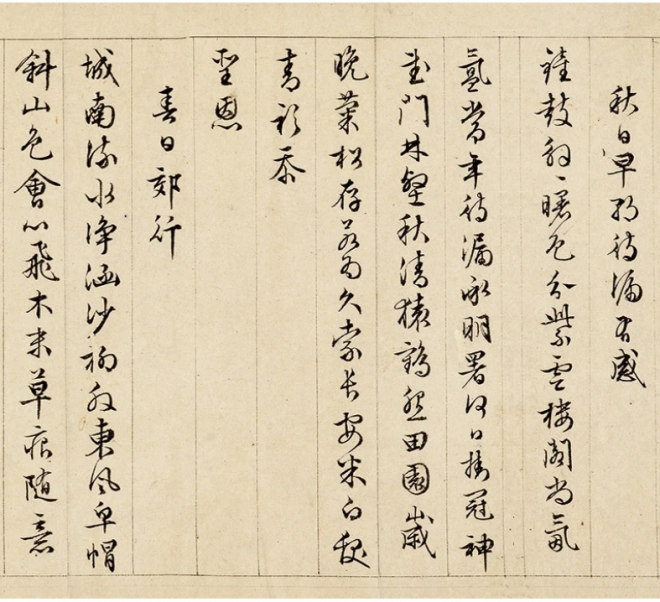 秋日早朝待漏有感
鐘鼓殷〻曙色分紫雲樓閣尚氤
氳常年待漏承明署何日掛冠神
武門林壑秋清猿鶴怨田園歲
晚菊松存若為久索長安米白髮
青衫忝
聖恩
春日郊行
城南流水淨涵沙柳東風皁帽
斜山色會心飛木末草痕隨意